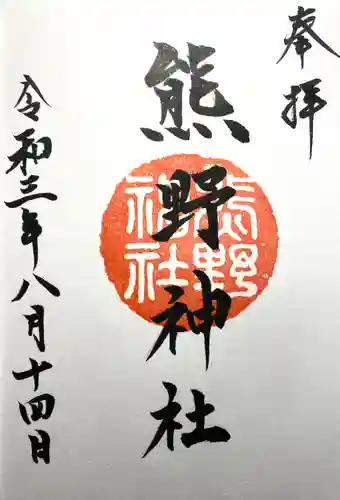 奉拝
熊野神社
熊野
神社
令和三年八月十四日